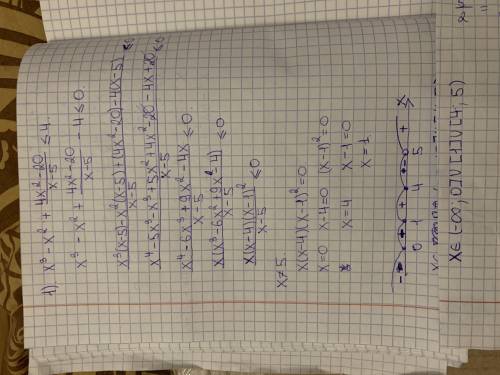 1) x³ - x² + (4x²-20)/(x-5) ≤ 4.
x³ - x² + (4x²-20)/(x-5) - 4 ≤ 0.
(x³(x-5) - x²(x-5) + (4x²-20) - 4(x-5))/(x-5) ≤ 0
(x⁴ - 5x³ - x³ + 5x² + 4x² - 20 - 4x + 20)/(x-5) ≤ 0
(x⁴ - 6x³ + 9x² - 4x)/(x-5) ≤ 0
(x(x³ - 6x² + 9x - 4))/(x-5) ≤ 0
(x(x-4)(x-1)²)/(x-5) ≤ 0
x≠5
x(x-4)(x-1)² = 0
x=0 x-4=0 (x-1)²=0
x=4 x-1=0
x=1
- + + - + x
0 1 4 5
x∈(-∞; 0]∪[1]∪[4; 5)